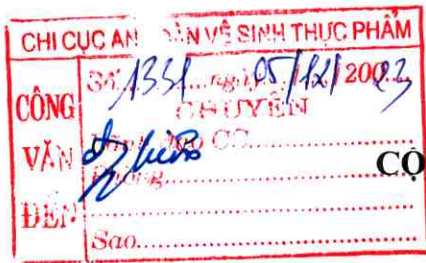 CHI CỤC AN TOÀN VỆ SINH THỰC PHẨM
CÔNG VĂN ĐẾN
Số: 1331 ngày 05/12/2023
CHUYỂN
CỘ
Sao